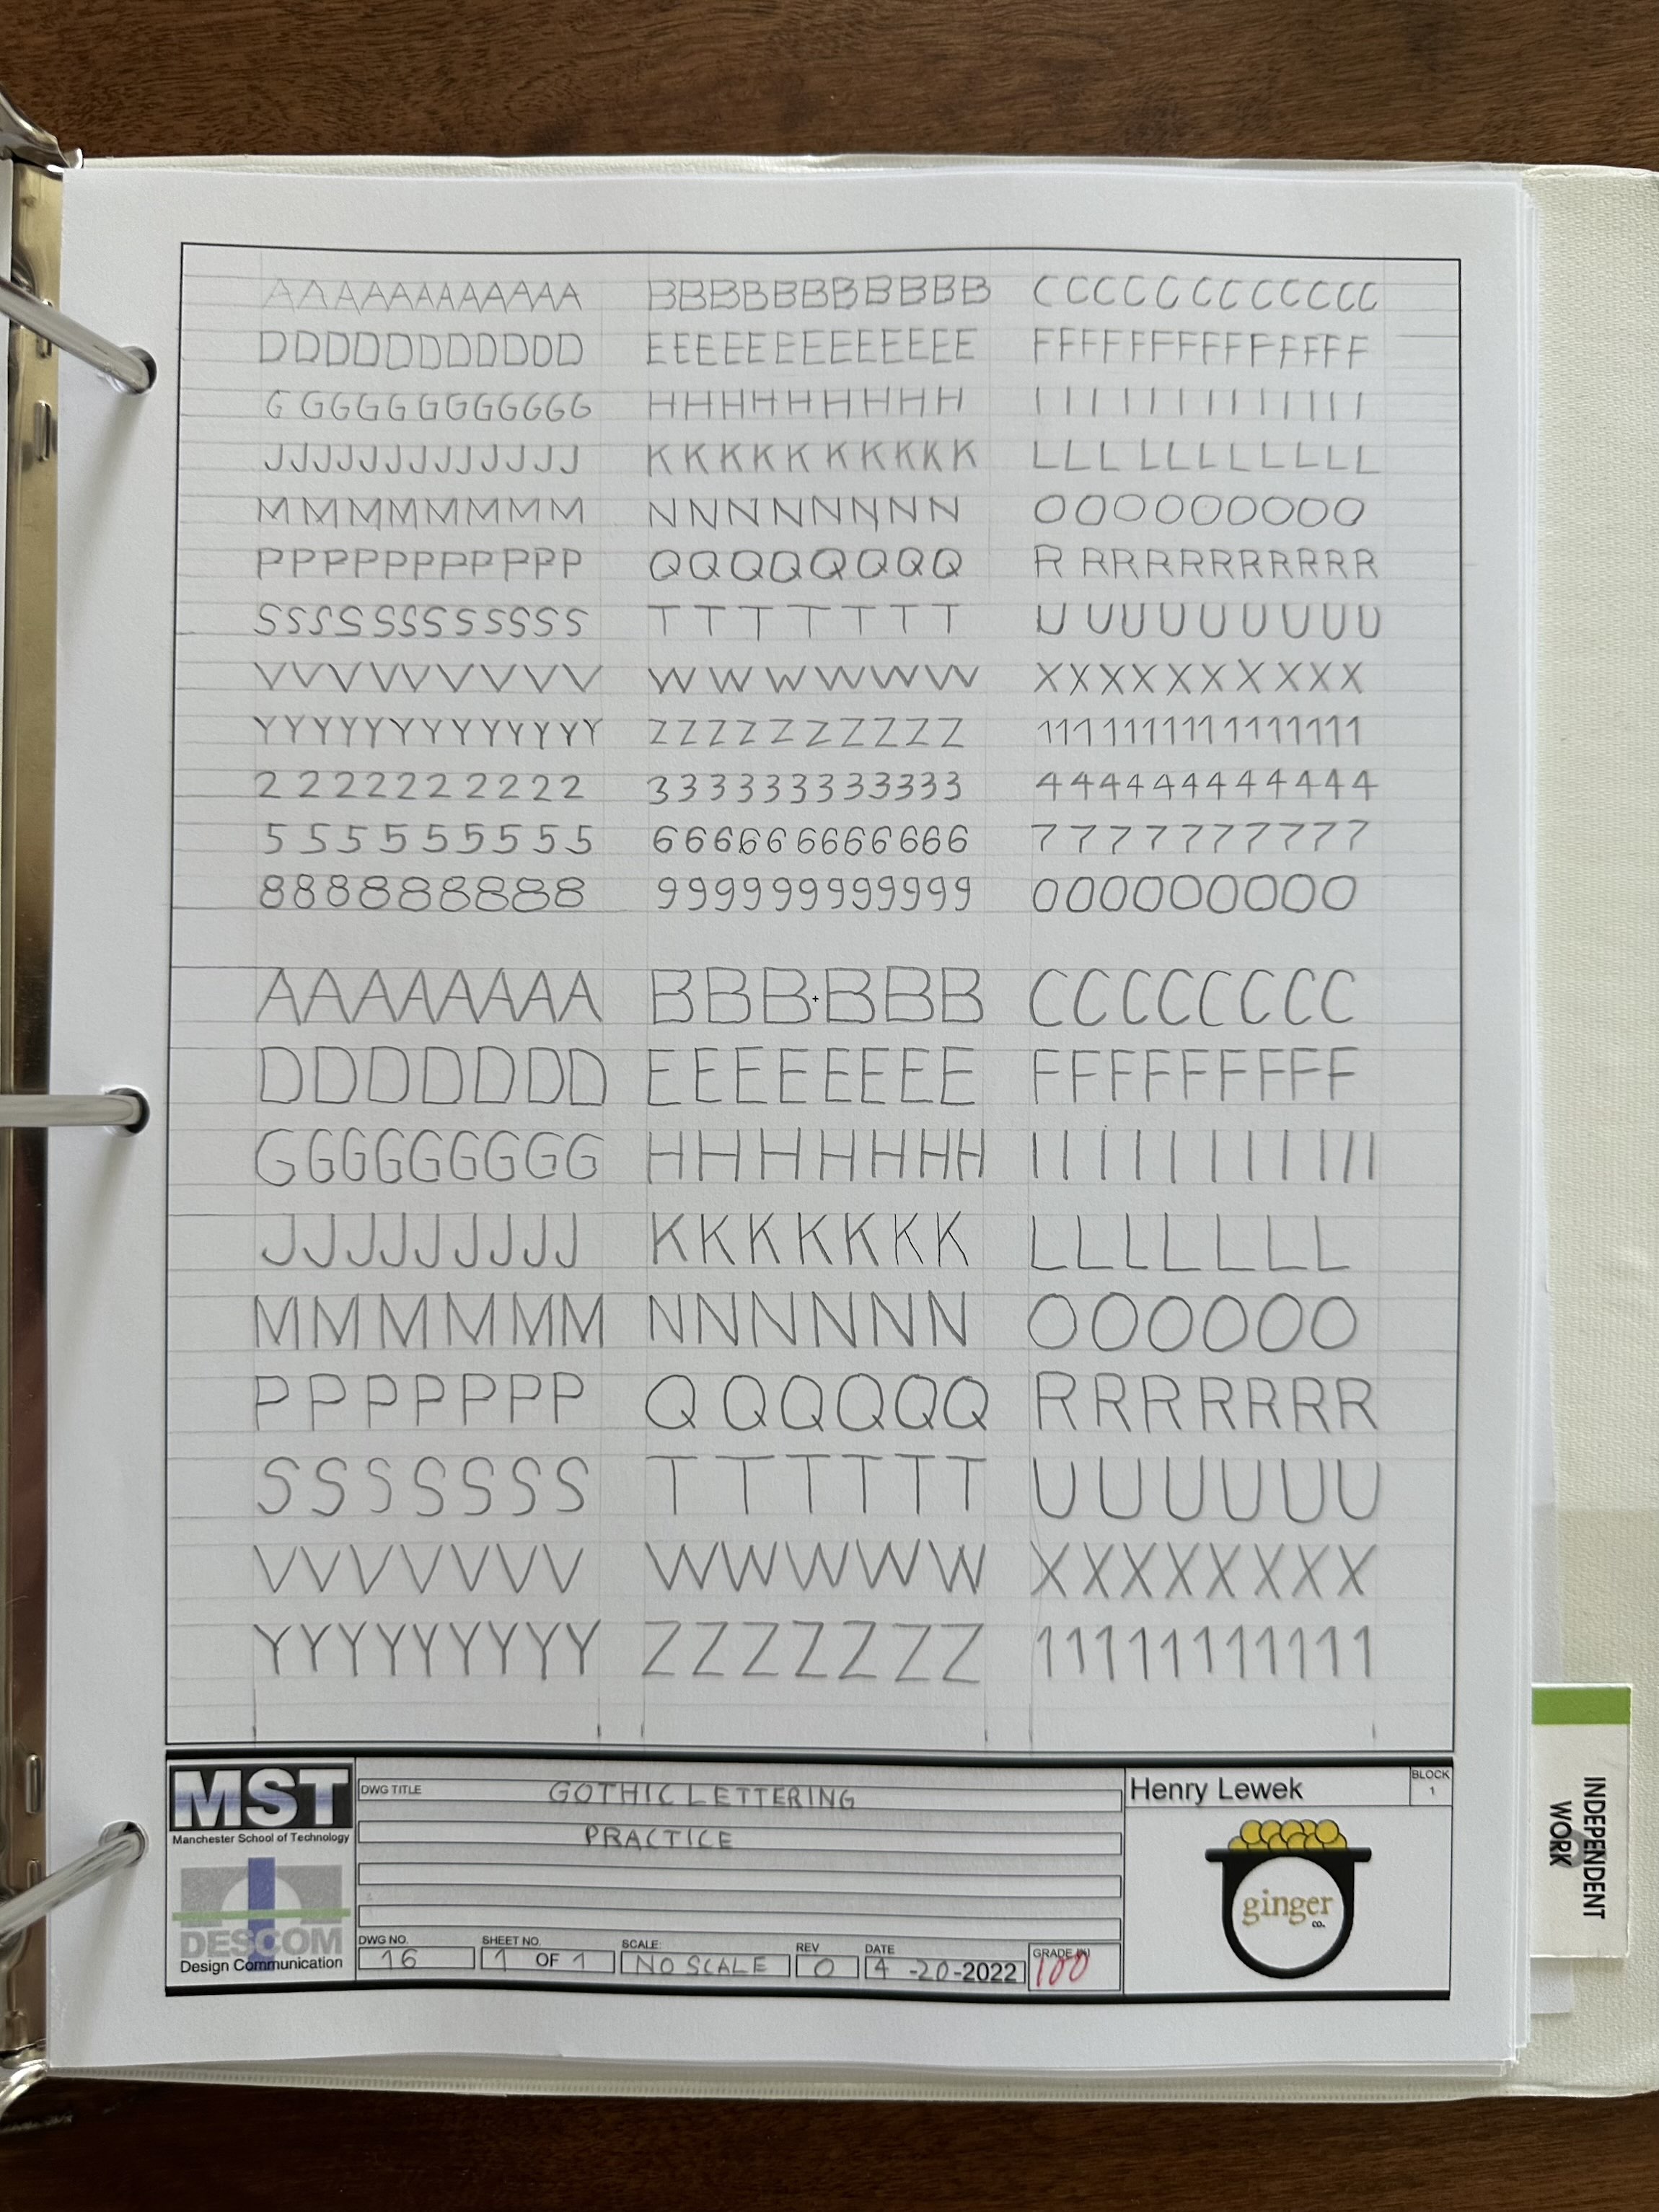 AAAAAAAAAAAA BBBBBBBBBBB CCCCCCCCCCCC
DDDDDDDDDDD EEEEEEEEEEEEE FFFFFFFFFFFFFF
GGGGGGGGGGGG HHHHHHHHHH IIIIIIIIIIIIII
JJJJJJJJJJJJJ KKKKKKKKKKK LLLLLLLLLLL
MMMMMMMMM NNNNNNNN OOOOOOOOO
PPPPPPPPPPPP QQQQQQQQ RRRRRRRRRRR
SSSSSSSSSSSSS TTTTTTT UUUUUUUUU
VVVVVVVVV WWWWWWW XXXXXXXXXXX
YYYYYYYYYYYYY ZZZZZZZZZZ 11111111111111111
2222222222 333333333333 4444444444444
555555555 666666666666 7777777777
888888888 999999999999 0000000000
AAAAAAAA BBBBBB CCCCCCCC
DDDDDDD EEEEEEEE FFFFFFFFF
GGGGGGGGG HHHHHHH IIIIIIIIIII
JJJJJJJJJ KKKKKKK LLLLLLL
MMMMMM NNNNNN OOOOOO
PPPPPPP QQQQQQ RRRRRRR
SSSSSSS TTTTTT UUUUUU
VVVVVVV WWWWW XXXXXXXX
YYYYYYYYY ZZZZZZZ 11111111111
MST
Manchester School of Technology
DESCOM
Design Communication
DWG TITLE GOTHIC LETTERING
PRACTICE
DWG NO. 16
SHEET NO. 1 OF 1
SCALE: NO SCALE
REV 0
DATE 4-20-2022
GRADE 100
Henry Lewek
BLOCK 1
ginger
co.
INDEPENDENT
WORK